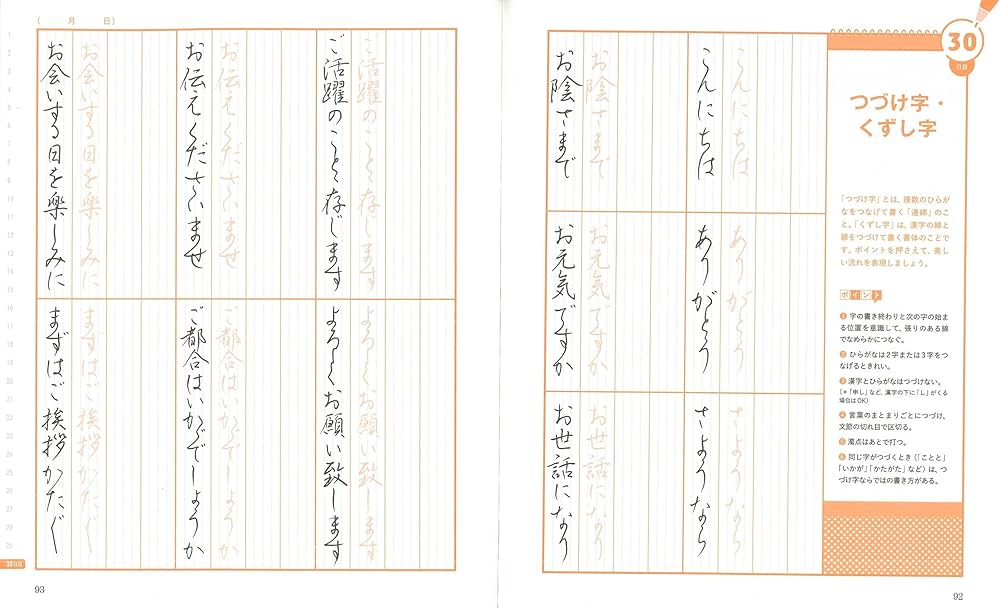 30
日目
つづけ字・
くずし字
「つづけ字」とは、複数のひらが
なをつなげて書く「連綿」のこ
と。「くずし字」は、漢字の線と
線をつづけて書く書体のことで
す。ポイントを押さえて、美し
い流れを表現しましょう。
ポイント
❶ 字の書き終わりと次の字の始ま
る位置を意識して、張りのある線
でなめらかにつなぐ。
❷ ひらがなは2字または3字をつ
なげるときれい。
❸ 漢字とひらがなはつづけない。
(＊「申し」など、漢字の下に「し」がくる
場合はOK)
❹ 言葉のまとまりごとにつづけ、
文節の切れ目で区切る。
❺ 濁点はあとで打つ。
❻ 同じ字がつづくとき(「ことと」
「いかが」「かたがた」など)は、つ
づけ字ならではの書き方がある。
こんにちは
こんにちは
お陰さまで
お陰さまで
ありがとう
ありがとう
お元気ですか
お元気ですか
さようなら
さようなら
お世話になり
お世話になり
92
(　月　日)
ご活躍のことと存じます
ご活躍のことと存じます
お伝えくださいませ
お伝えくださいませ
お会いする日を楽しみに
お会いする日を楽しみに
よろしくお願い致します
よろしくお願い致します
ご都合はいかがでしょうか
ご都合はいかがでしょうか
まずはご挨拶かたがた
まずはご挨拶かたがた
30日目
93